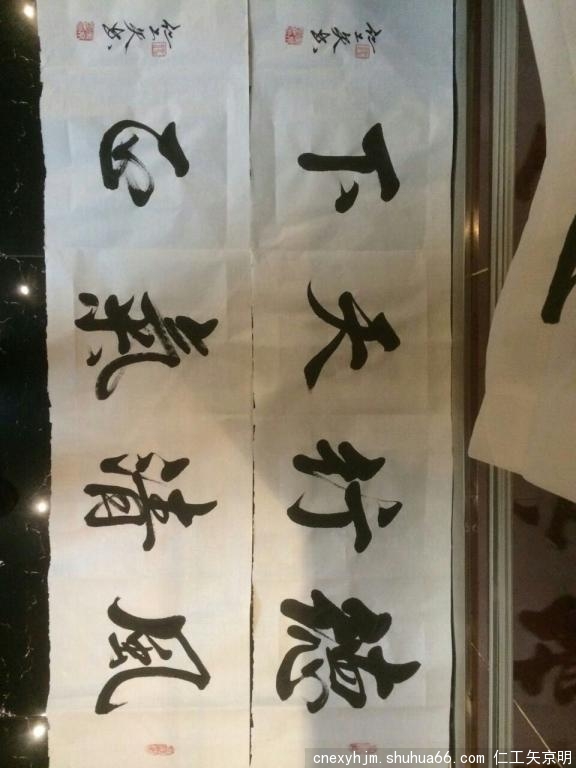 德行天下
仁工矢书
風清氣正
仁工矢书
cnexyhjm.shuhua66.com 仁工矢京明